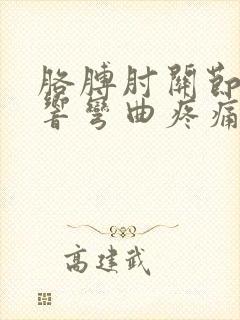 胳膊肘關節
響彎曲疼痛
高建武